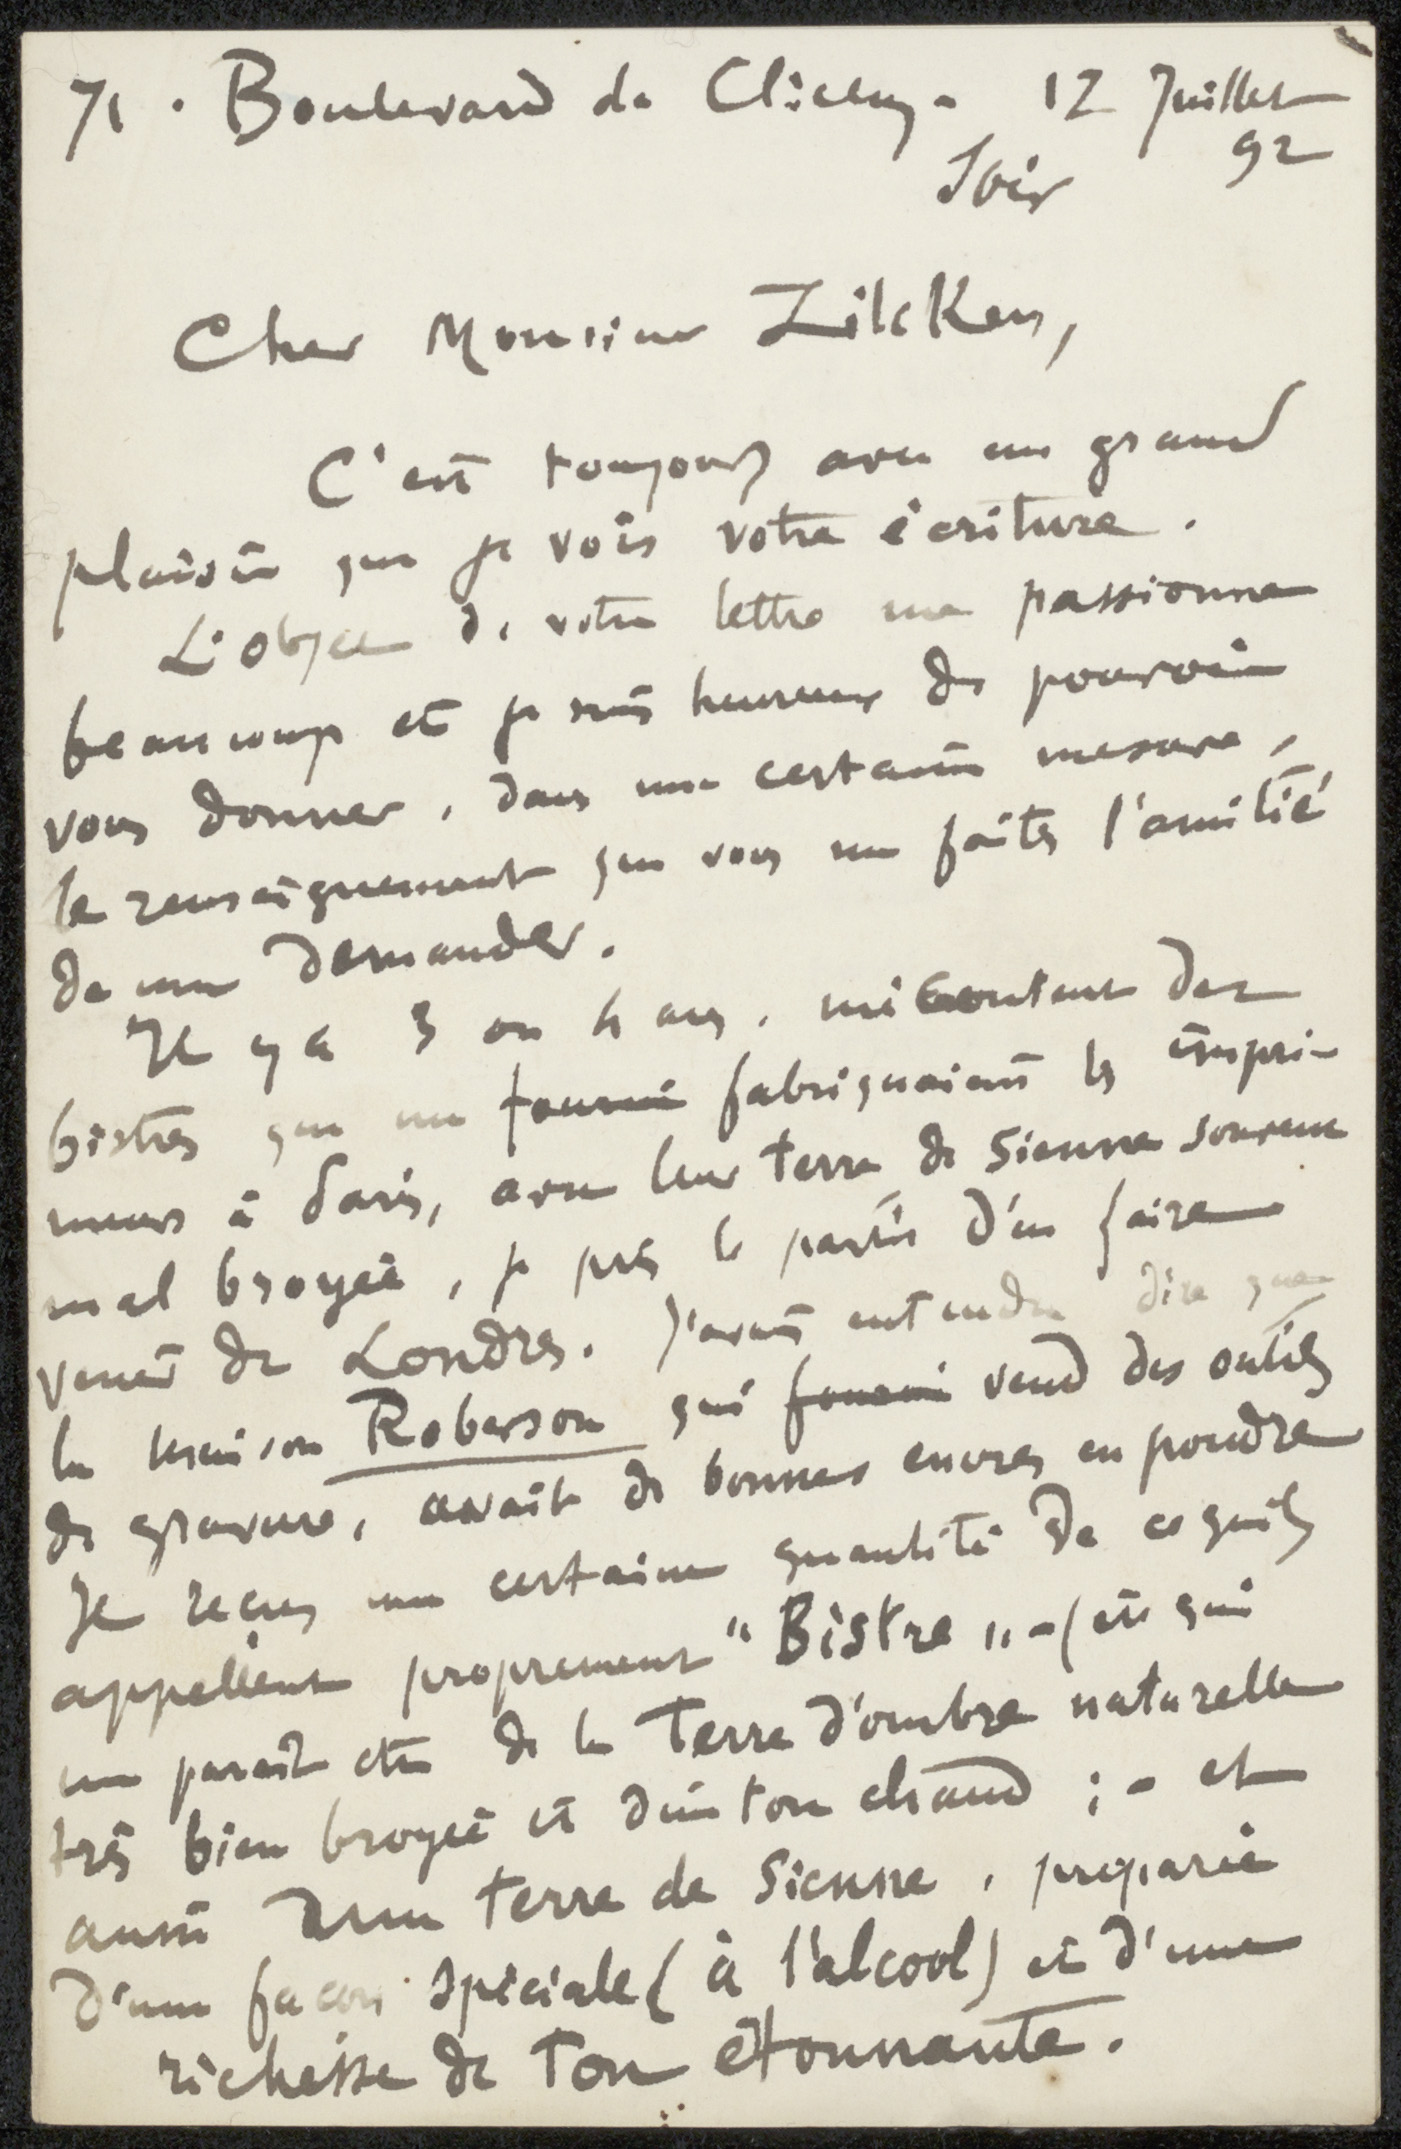 71. Boulevard de Clichy - 12 Juillet
92
Cher Monsieur Zilcken,
C'est toujours avec un grand
plaisir que je vois votre écriture.
L'objet de votre lettre me passionne
beaucoup et je suis heureux de pouvoir
vous donner, dans une certaine mesure,
le renseignement que vous me faites l'amitié
de me demander.
Il y a 3 ou 4 ans, mécontent des
bistres que me fourni fabriquaient les impri-
meurs à Paris, avec leur terre de Sienne souvent
mal broyée, je pris le parti d'en faire
venir de Londres. J'avais entendu dire que
la maison Roberson qui fourni vend des outils
de gravure, avait de bonnes encres en poudre
Je reçus une certaine quantité de ce qu'ils
appellent proprement "Bistre" - (et qui
me paraît être de la Terre d'ombre naturelle
très bien broyée et d'un ton chaud ; - et
aussi d'une terre de Sienne, préparée
d'une façon spéciale (à l'alcool) et d'une
richesse de ton étonnante.